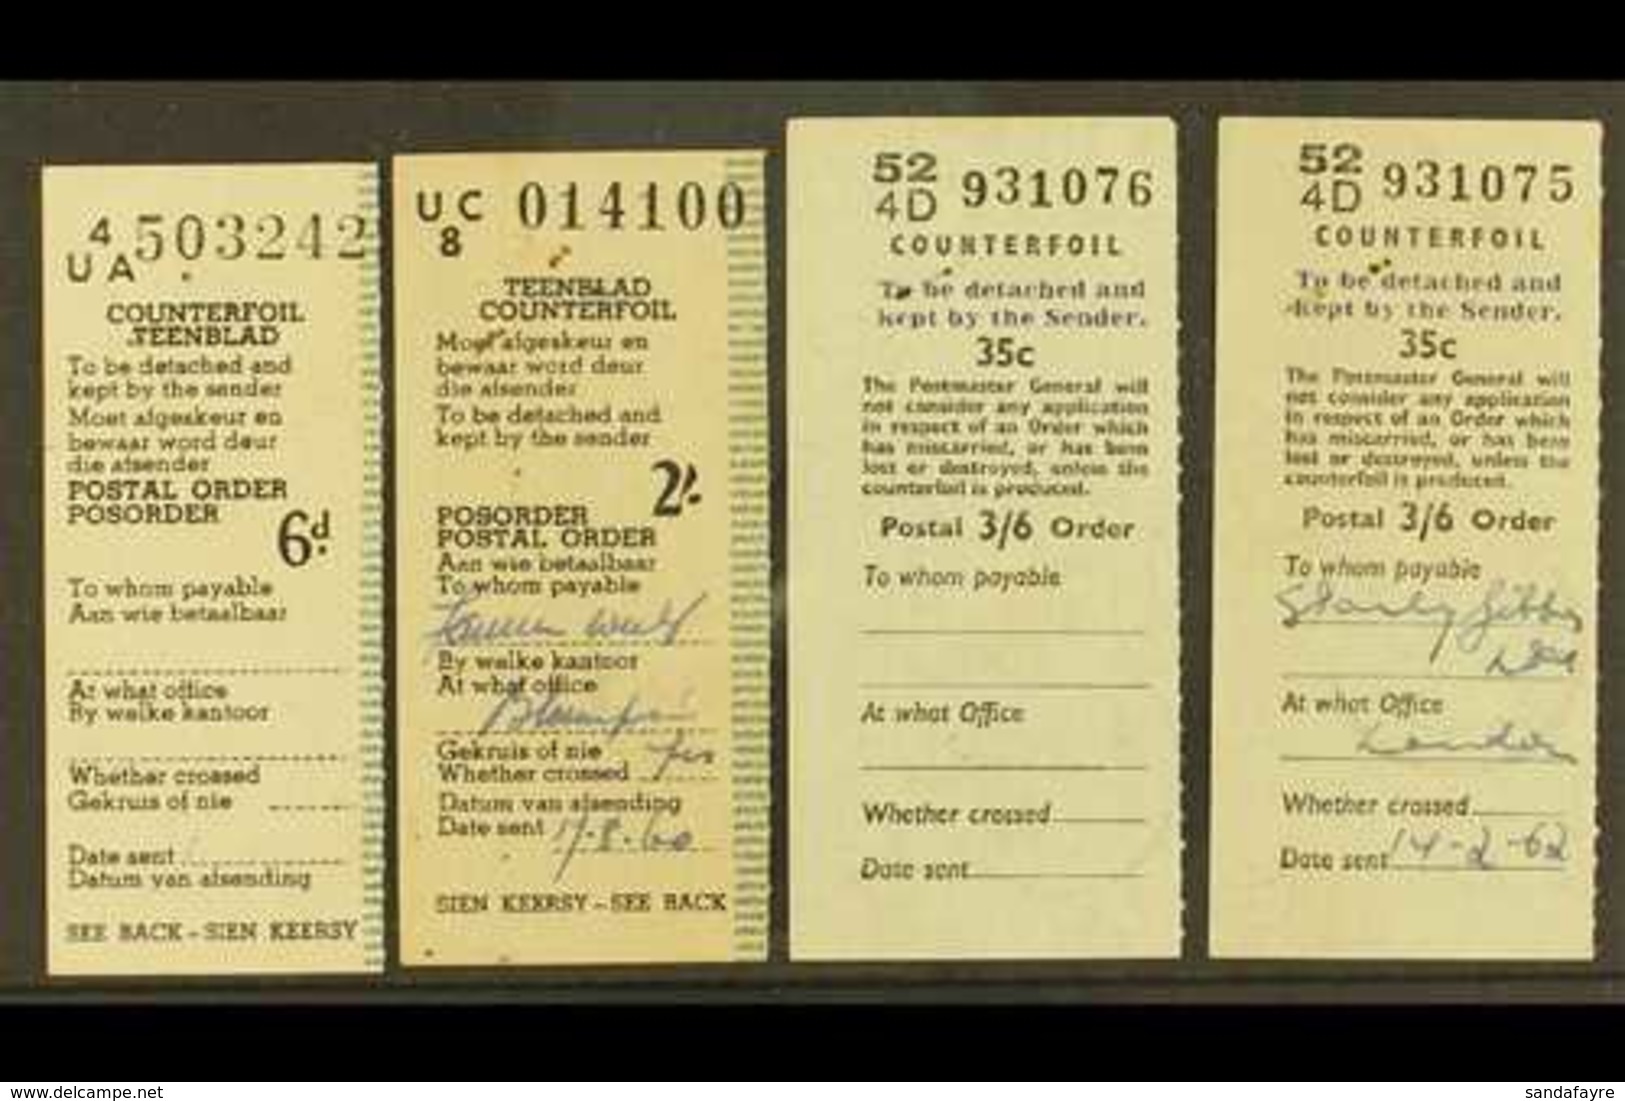 4
U A 503242
COUNTERFOIL
TEENBLAD
To be detached and
kept by the sender
Moet afgeskeur en
bewaar word deur
die afsender
POSTAL ORDER
POSORDER
6d.
To whom payable
Aan wie betaalbaar
At what office
By welke kantoor
Whether crossed
Gekruis of nie
Date sent
Datum van afsending
SEE BACK - SIEN KEERSY
U C 014100
8
TEENBLAD
COUNTERFOIL
Moet afgeskeur en
bewaar word deur
die afsender
To be detached and
kept by the sender
2/-
POSORDER
POSTAL ORDER
Aan wie betaalbaar
To whom payable
By welke kantoor
At what office
Gekruis of nie
Whether crossed
Datum van afsending
Date sent 17-8-60
SIEN KEERSY - SEE BACK
52
4D 931076
COUNTERFOIL
To be detached and
kept by the Sender.
35c
The Postmaster General will
not consider any application
in respect of an Order which
has miscarried, or has been
lost or destroyed, unless the
counterfoil is produced.
Postal 3/6 Order
To whom payable
At what Office
Whether crossed
Date sent
52
4D 931075
COUNTERFOIL
To be detached and
kept by the Sender.
35c
The Postmaster General will
not consider any application
in respect of an Order which
has miscarried, or has been
lost or destroyed, unless the
counterfoil is produced.
Postal 3/6 Order
To whom payable
Stanley Gibbons
Ltd
At what Office
London
Whether crossed
Date sent 14-2-62
www.delcampe.net
sandafayre